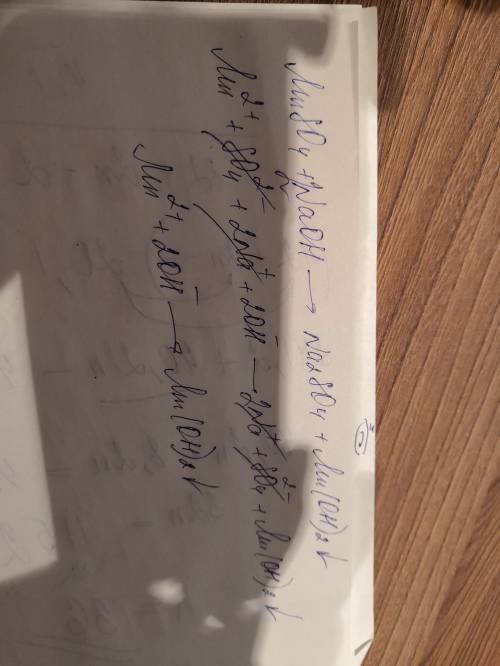 MnSO4 + 2NaOH → Na2SO4 + Mn(OH)2↓
Mn2+ + SO42- + 2Na+ + 2OH- → 2Na+ + SO42- + Mn(OH)2↓
Mn2+ + 2OH- → Mn(OH)2↓